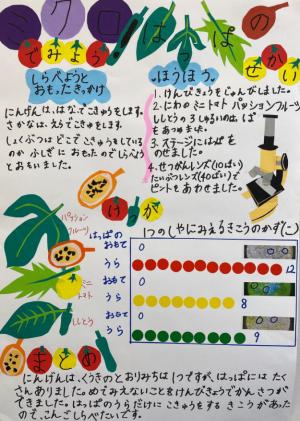 ミクロはっぱの
せかい
でみよう
しらべようと
おもったきっかけ
にんげんは、はなでこきゅうをします。
さかなは、えらでこきゅをします。
しょくぶつはどこでこきゅうをしているの
か ふしぎに おもたのでしらべよう
とおもいました。
ほうほう。
1.けんびきょうをじゅんびしました。
2.にわのミニトマト パッションフルーツ
ししとうの3しゅるいのは、ぱ
をあつめまた。
3.ステージにはぱを
のせました。
4.せつがんレンズ(10ばい)
たいぶつレンズ(40ばい)で
ピントをあわせました。
けっか
1つのしゃにみえるきこうのかず(こ)
パッション
フルーツ
はっぱの
おもて
0
うら
12
ミニ
トマト
おもて
0
うら
8
ししとう
おもて
0
うら
9
まとめ
にんげんは、くうきのとおりみちは1つですが、はっぱには たく
さんありました。めでみえないことをけんびきょうでかんさつが
できました。はっぱのうらだけにこきゅうをするきこうがあった
ので、こんごしらべたいです。